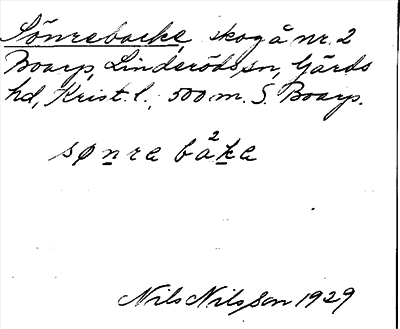 Sönrebacke, skog å nr. 2
Boarp, Linderöds sn, Gärds
hd, Krist. l., 500 m. S. Boarp.
sønra bå²ka
Nils Nilsson 1929